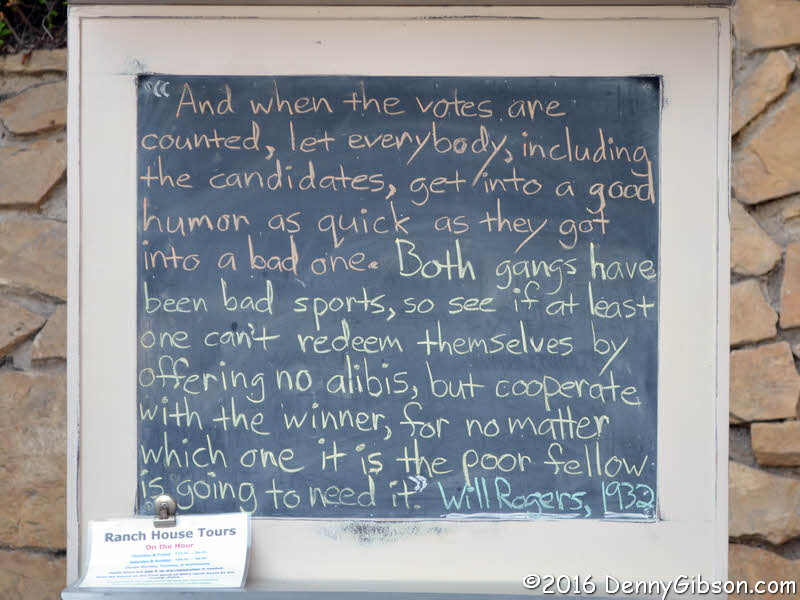 “And when the votes are
counted, let everybody, including
the candidates, get into a good
humor as quick as they got
into a bad one. Both gangs have
been bad sports, so see if at least
one can't redeem themselves by
offering no alibis, but cooperate
with the winner, for no matter
which one it is the poor fellow
is going to need it.” Will Rogers, 1932
Ranch House Tours
On the Hour
©2016 DennyGibson.com